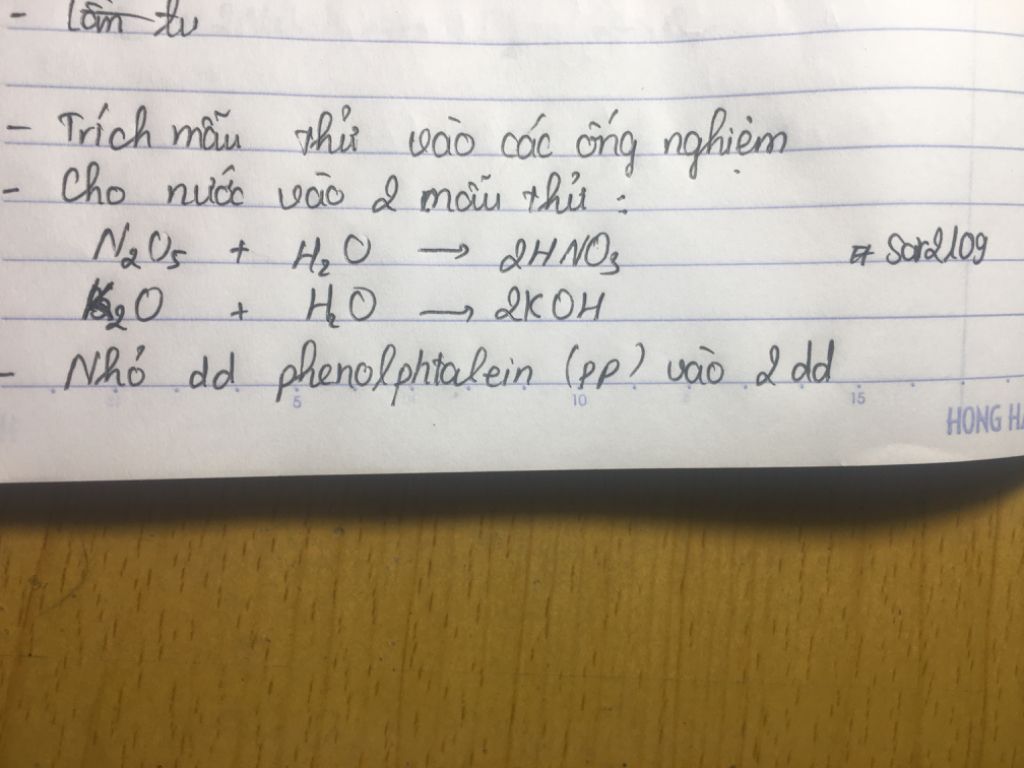 - Trích mẫu thử vào các ống nghiệm
- Cho nước vào 2 mẫu thử :
N₂O₅ + H₂O → 2HNO₃
K₂O + H₂O → 2KOH
- Nhỏ dd phenolphtalein (pp) vào 2 dd
5 10 15
HONG HA